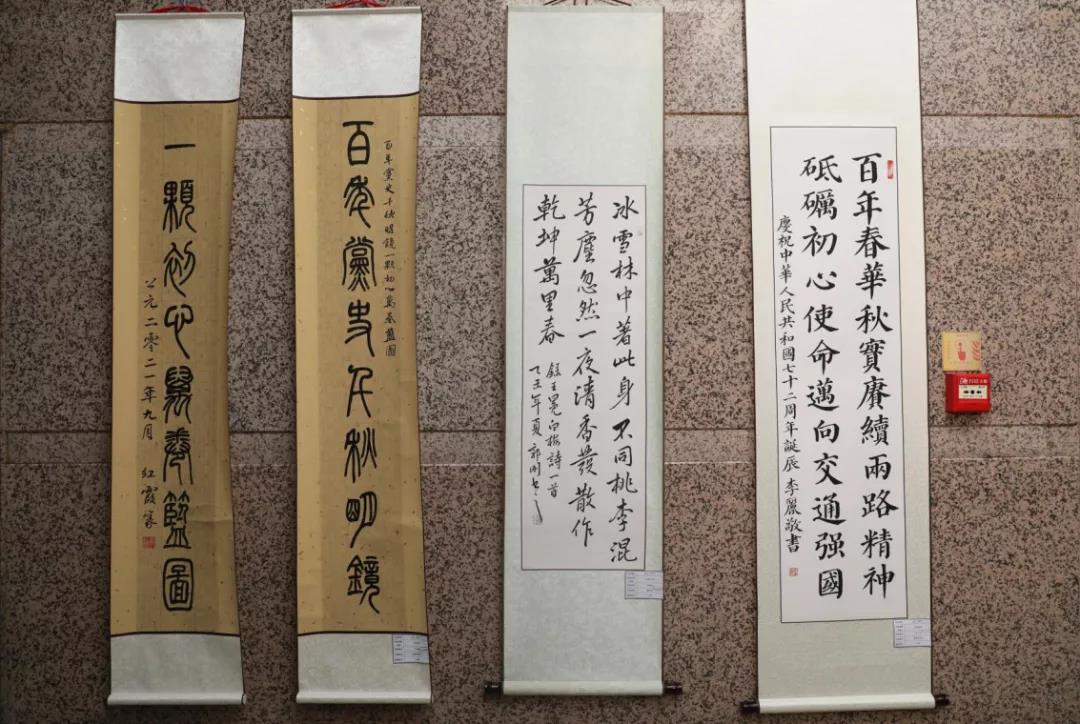 百年春華秋實賡續兩路精神
砥礪初心使命邁向交通强國
慶祝中華人民共和國七十二周年誕辰 李麗敬書
冰雪林中著此身 不同桃李混
芳塵忽然一夜清香發散作
乾坤萬里春
録王冕白梅詩一首
丑年夏
百年黨史千秋明鏡一顆初心萬卷藍圖
百年黨史千秋明鏡
一顆初心萬卷藍圖
公元二零二一年九月 紅霞篆